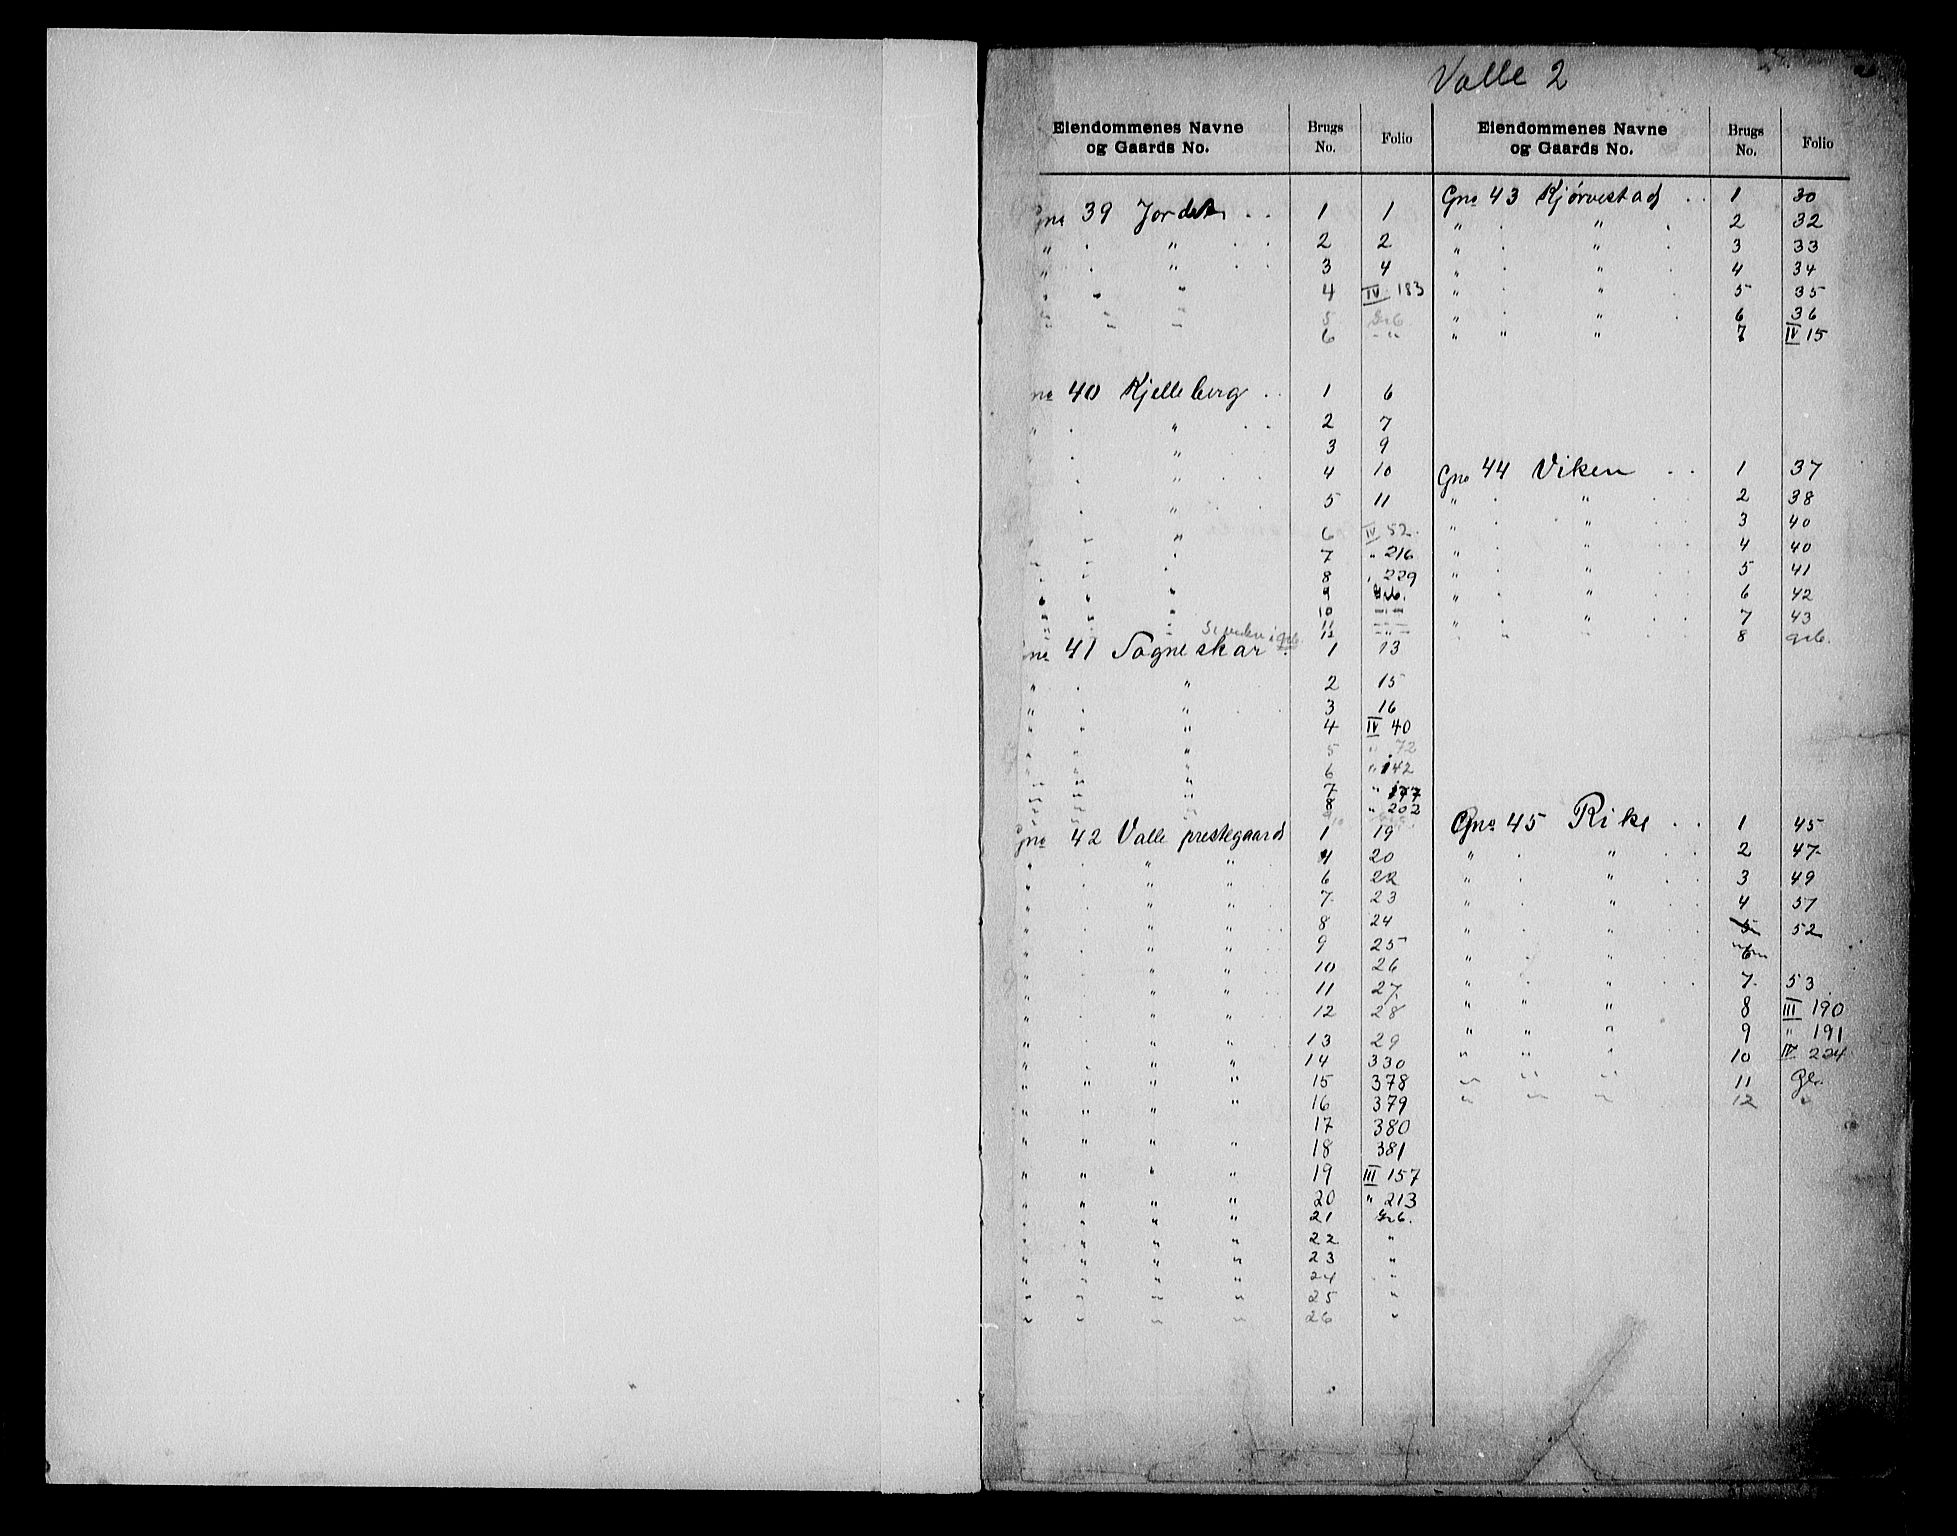 Valle 2
Eiendommenes Navne og Gaards No. Brugs No. Folio
Gno 39 Jordet . . 1 1
" . " . . 2 2
" . " . . 3 4
" " " 4 IV 183
" " " 5 Grb
" " " 6 - "
Gno 40 Kjelleberg . . 1 6
" . " . . 2 7
" . " 3 9
" . " . . 4 10
" . " . 5 11
" " " 6 IV 52
" " " 7 " 216
" " " 8 " 229
" " " 9 Grb.
" " " 10 - " -
" " " 11 - " -
" " " 12 - " -
Gno 41 Sogneskar . 1 13
" . " 2 15
" . " . . 3 16
" . " 4 IV 40
" " " 5 " 72
" " " 6 " 142
" " " 7 " 177
" " " 8 " 202
Gno 42 Valle prestegaard 1 19
" . " " 4 20
" . " " 6 22
" . " " 7 23
" . " " 8 24
" . " " 9 25
" . " " 10 26
" . " " 11 27
" . " " 12 28
" . " " 13 29
" . " " 14 330
" " " " 15 378
" " " " 16 379
17 380
" " " " 18 381
" " " " 19 III 157
" " " " 20 " 213
" " " " 21 Grb.
" " " " 22 "
" " " " 23 "
" " " " 24 "
" " " " 25 "
" " " " 26 "
Eiendommenes Navne og Gaards No. Brugs No. Folio
Gno 43 Kjørvestad . . 1 30
" . " . 2 32
" . " . 3 33
" . " . 4 34
" . " . 5 35
" . " . 6 36
" " " 7 IV 15
Gno 44 Viken . . 1 37
" . " . 2 38
" . " . 3 40
" . " . . 4 40
" . " . . 5 41
" . " . . 6 42
" . " . . 7 43
" " " 8 Grb.
Gno 45 Rike . . 1 45
" . " . . 2 47
" . " . . 3 49
" . " . . 4 51
" . " . . 5 52
" . " . . 6
" . " . . 7 53
" " " 8 III 190
" " " 9 " 191
" " " 10 IV 224
" " " 11
" " " 12 "